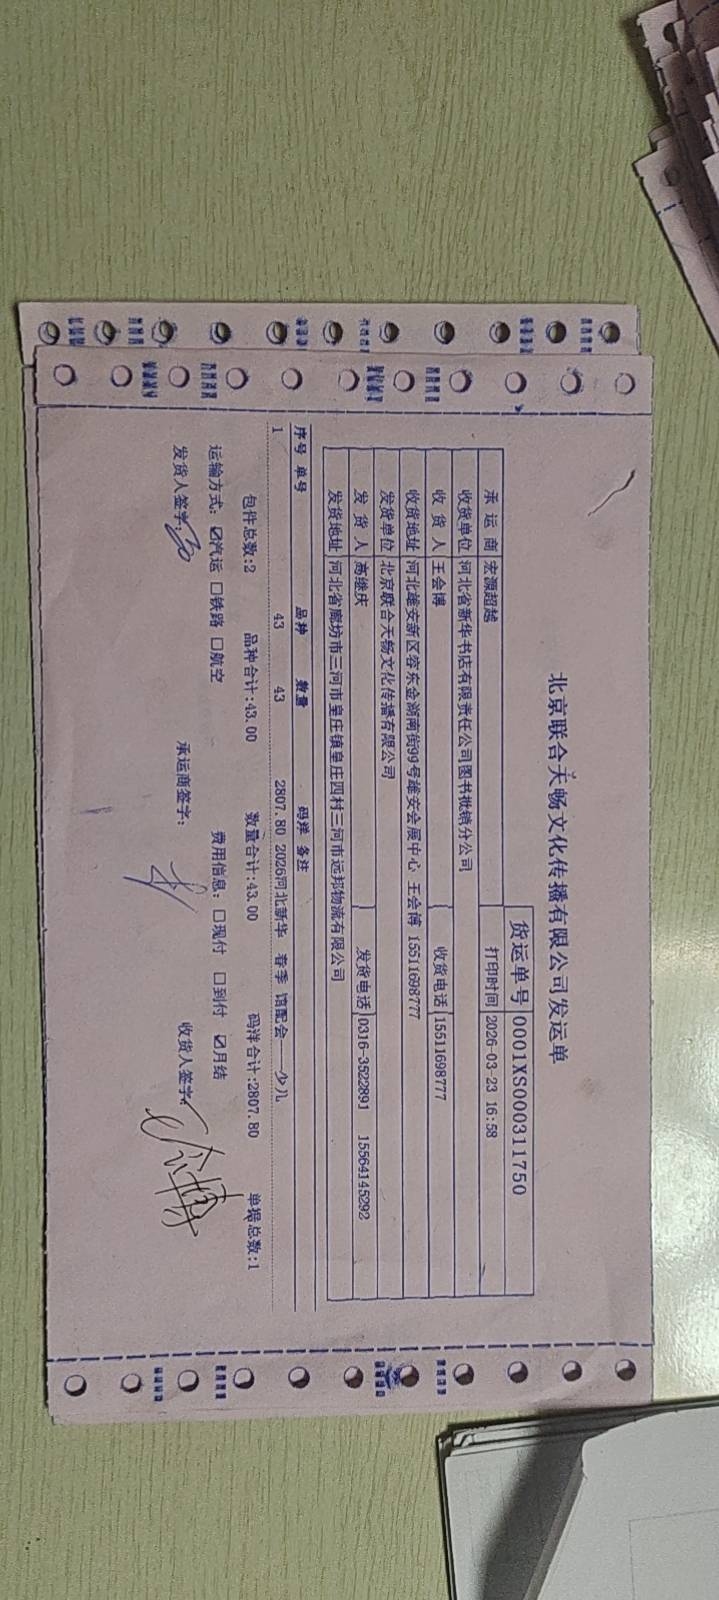 北京联合天畅文化传播有限公司发运单
货运单号 0001XS000311750
承运商 宏源超越 打印时间 2026-03-23 16:58
收货单位 河北省新华书店有限责任公司图书批销分公司
收货人 王会博 收货电话 15511698777
收货地址 河北雄安新区容东金湖南街99号雄安会展中心 王会博 15511698777
发货单位 北京联合天畅文化传播有限公司
发货人 高继庆 发货电话 0316-3522891 15564145292
发货地址 河北省廊坊市三河市皇庄镇皇庄四村三河市远邦物流有限公司
序号 单号 品种 数量 码洋 备注
1 43 43 2807.80 2026河北新华 春季 馆配会——少儿
包件总数:2 品种合计:43.00 数量合计:43.00 码洋合计:2807.80 单据总数:1
运输方式: ☑汽运 □铁路 □航空 费用信息: □现付 □到付 ☑月结
发货人签字: 承运商签字: 收货人签字: